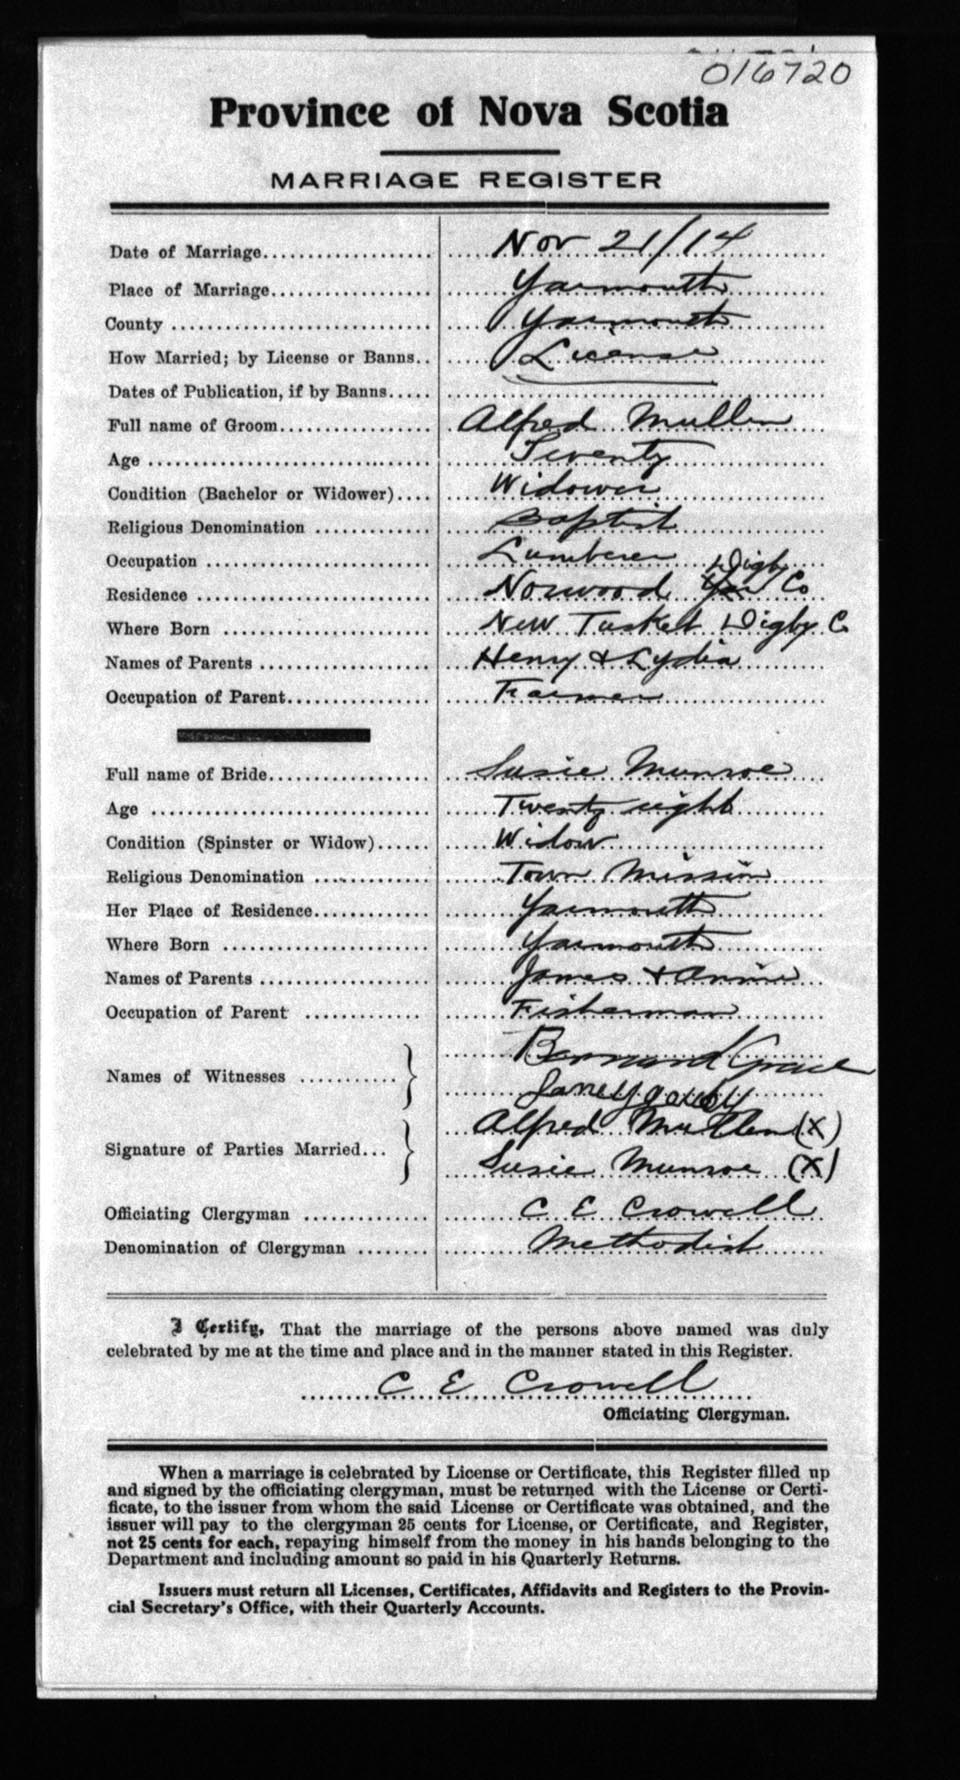 016720
Province of Nova Scotia
MARRIAGE REGISTER
Date of Marriage.................... Nov 21/14
Place of Marriage................... Yarmouth
County ............................. Yarmouth
How Married; by License or Banns.. License
Dates of Publication, if by Banns.....
Full name of Groom................. Alfred Mullen
Age ............................... Seventy
Condition (Bachelor or Widower).... Widower
Religious Denomination ............. Baptist
Occupation ......................... Lumberer
Residence .......................... Norwood Digby Co
Where Born ......................... New Tusket Digby C
Names of Parents ................... Henry & Lydia
Occupation of Parent................ Farmer
Full name of Bride.................. Susie Munroe
Age ................................ Twenty eight
Condition (Spinster or Widow)...... Widow
Religious Denomination ............. Town Mission
Her Place of Residence.............. Yarmouth
Where Born ......................... Yarmouth
Names of Parents ................... James & Annie
Occupation of Parent ............. Fisherman
Names of Witnesses ........... } Bernard Grace
Janey goudy
Signature of Parties Married... } Alfred Mullen (X)
Susie Munroe (X)
Officiating Clergyman .............. C E Crowell
Denomination of Clergyman ........ Methodist
I Certify, That the marriage of the persons above named was duly
celebrated by me at the time and place and in the manner stated in this Register.
C E Crowell
Officiating Clergyman.
When a marriage is celebrated by License or Certificate, this Register filled up
and signed by the officiating clergyman, must be returned with the License or Certi-
ficate, to the issuer from whom the said License or Certificate was obtained, and the
issuer will pay to the clergyman 25 cents for License, or Certificate, and Register,
not 25 cents for each, repaying himself from the money in his hands belonging to the
Department and including amount so paid in his Quarterly Returns.
Issuers must return all Licenses, Certificates, Affidavits and Registers to the Provin-
cial Secretary's Office, with their Quarterly Accounts.